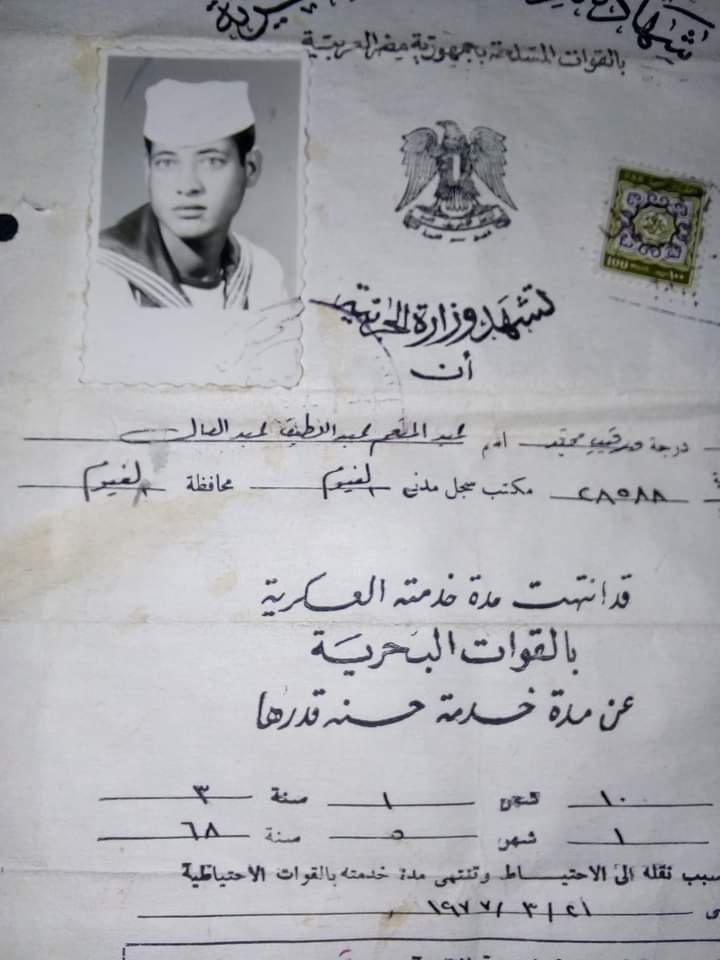 شهادة
بالقوات المسلحة بجمهورية مصر العربية
100
١٠٠
تشهد وزارة الحربية
أن
درجة رقيب مجند اسم عبد المنعم عبد اللطيف عبد العال
٢٨٥٨٨ مكتب سجل مدنى الفيوم محافظة الفيوم
قد انتهت مدة خدمته العسكرية
بالقوات البحرية
عن مدة خدمة حسنه قدرها
١٠ شهر ١ سنة ٣
١ شهر ٥ سنة ٦٨
سبب نقله الى الاحتياط وتنتهى مدة خدمته بالقوات الاحتياطية
١٩٧٧/٣/٢١